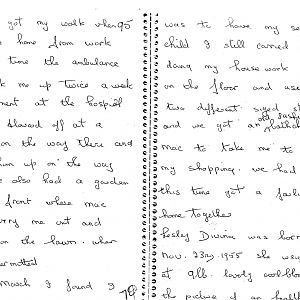 got my work when 95
home from work
time the ambulance
me up twice a week
ment at the hospitl
off at a
on the way there and
up on the way
also had a garden
front where mac
me out and
on the lawn. when
March I found I
79
was to have my se
child I still carried
doing my housework
on the floor and used
two different sized st
and we got an old fash
mac to take me to
my shopping. we had
this time got a
home together
Lesley Divine was born
nov. 23rd 1955 she weig
at 9lb. lovely cool blond
the picture of an health